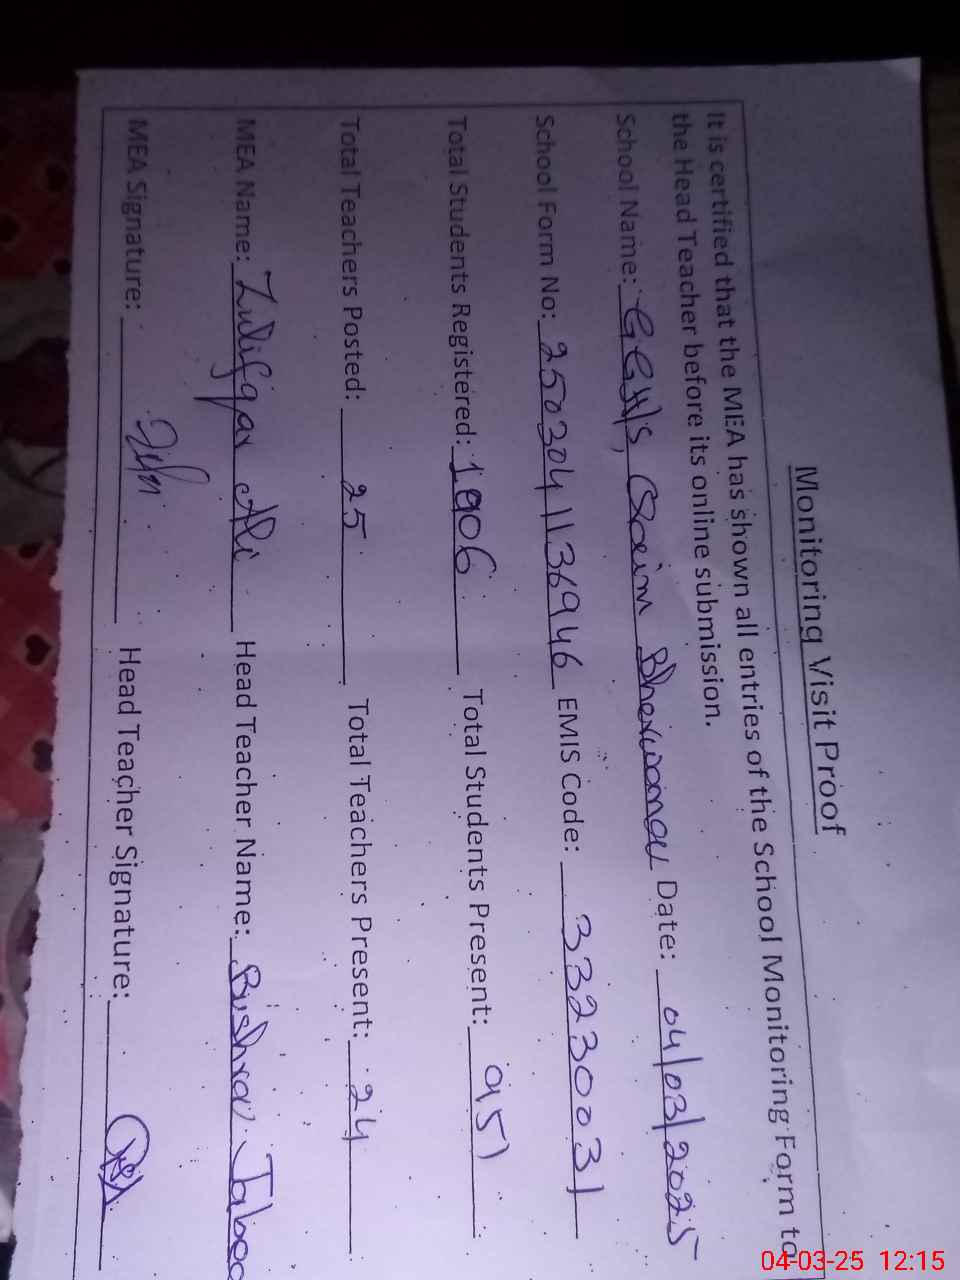 Monitoring Visit Proof
It is certified that the MEA has shown all entries of the School Monitoring Form to
the Head Teacher before its online submission.
School Name: GGH/S, Qaim Bharwana Date: 04/03/2025
School Form No: 2503041136946 EMIS Code: 33230031
Total Students Registered: 1006 Total Students Present: 951
Total Teachers Posted: 25 Total Teachers Present: 24
MEA Name: Zulifqar Ali Head Teacher Name: Bushra
MEA Signature: Head Teacher Signature:
04-03-25 12:15